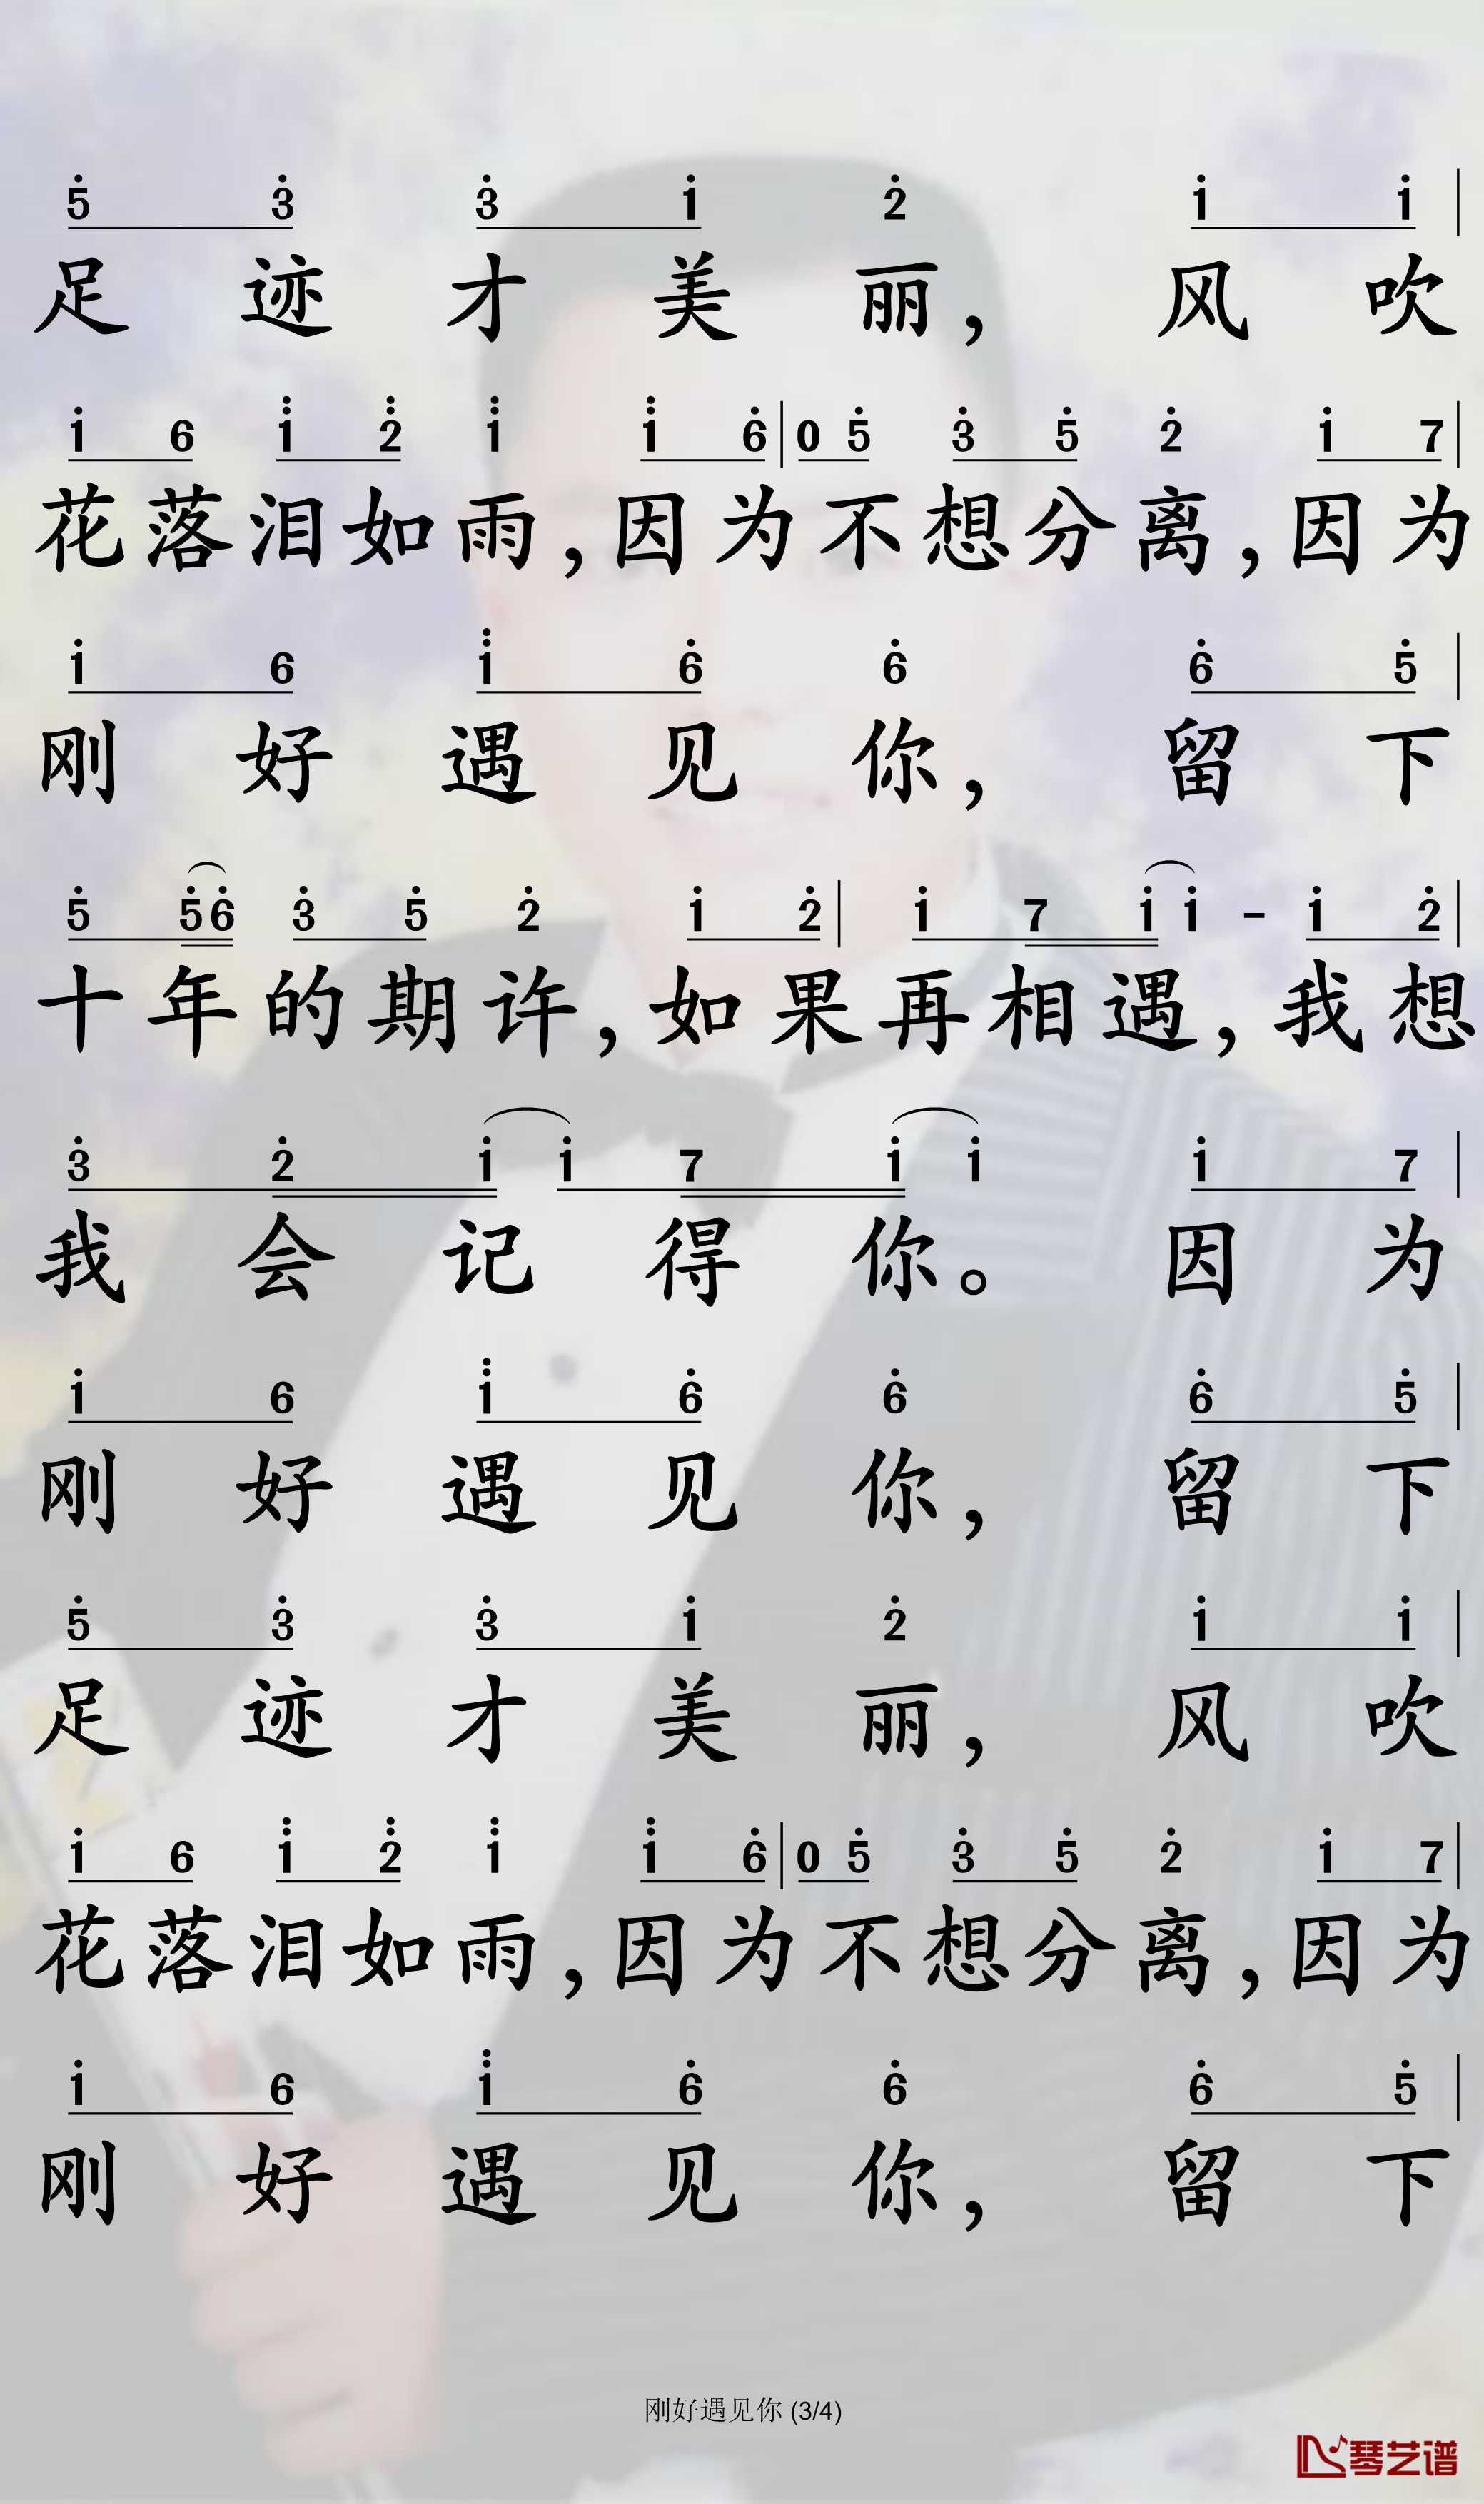 5̇ 3̇ 3̇ 1̇ 2̇ 1̇ 1̇ |
足迹才美丽，风吹
1̇ 6 1̈ 2̈ 1̈ 1̈ 6̇ | 0 5̇ 3̇ 5̇ 2̇ 1̇ 7 |
花落泪如雨，因为不想分离，因为
1̇ 6 1̈ 6̇ 6̇ 6̇ 5̇ |
刚好遇见你，留下
5̇ 5̇ 6̇ 3̇ 5̇ 2̇ 1̇ 2̇ | 1̇ 7 1̇ 1̇ - 1̇ 2̇ |
十年的期许，如果再相遇，我想
3̇ 2̇ 1̇ 1̇ 7 1̇ 1̇ 1̇ 7 |
我会记得你。因为
1̇ 6 1̈ 6̇ 6̇ 6̇ 5̇ |
刚好遇见你，留下
5̇ 3̇ 3̇ 1̇ 2̇ 1̇ 1̇ |
足迹才美丽，风吹
1̇ 6 1̈ 2̈ 1̈ 1̈ 6̇ | 0 5̇ 3̇ 5̇ 2̇ 1̇ 7 |
花落泪如雨，因为不想分离，因为
1̇ 6 1̈ 6̇ 6̇ 6̇ 5̇ |
刚好遇见你，留下
刚好遇见你 (3/4)
琴艺谱